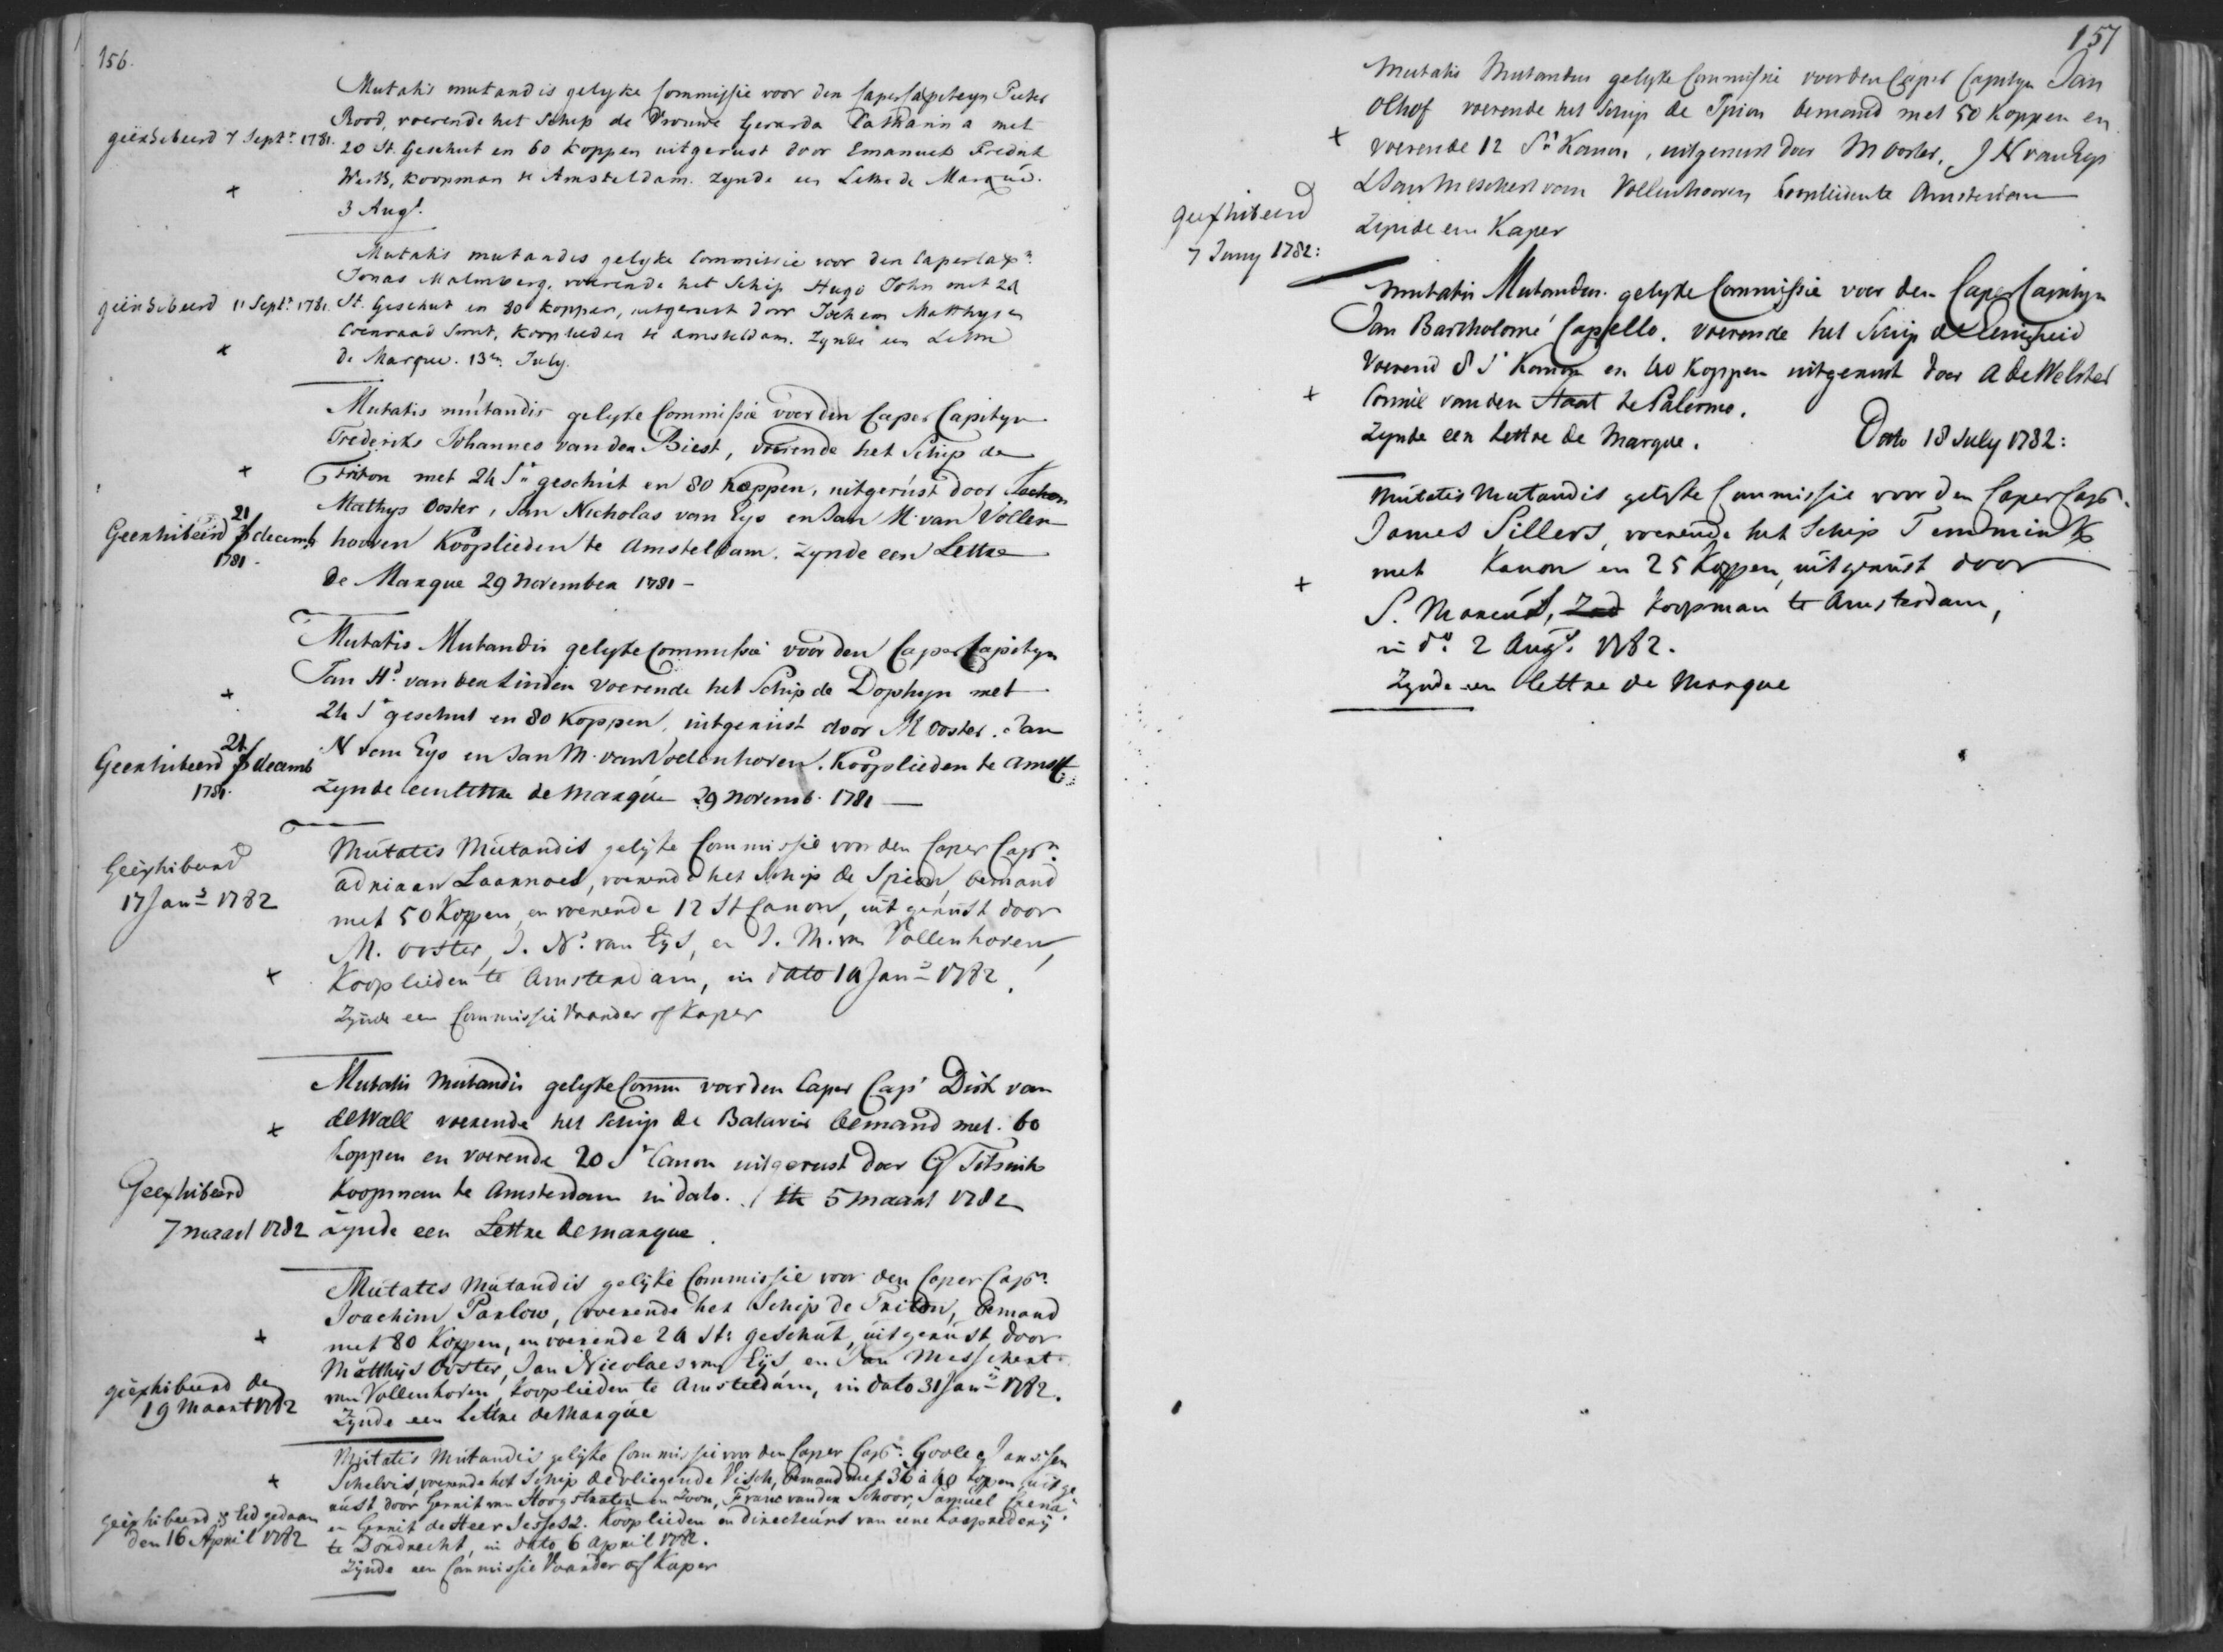 156.
Mutatis mutandis gelyke Commissie voor den Caper Capiteyn Pieter
Rood, voerende het Schip de Vrouwe Gerarda Catharina met
geëxhibeerd 7 Septr. 1781.
20 St. Geschut en 60 koppen uitgerust door Emanuel Fredrik
koopman te Amsteldam. Zynde een Lettre de Marque.
+
3 Augt.
Mutatis mutandis gelyke Commissie voor den Caper Capn.
Jonas Malmberg, voerende het Schip Hugo John met 24
geëxhibeerd 11 Septr. 1781.
St. Geschut en 80 koppen, uitgerust door Jochem Matthys en
Coenraad Smit, kooplieden te Amsteldam. Zynde een Lettre
+
de Marque. 13en July.
Mutatis mutandis gelyke Commissie voor den Caper Capityn
Frederiks Johannes van den Biest, voerende het Schip de
+
Triton met 24 Sn geschut en 80 koppen, uitgerust door Jochem
Mathys Ooster, Jan Nicholas van Eys en Jan M. van Vollen
Geexhibeerd 21 decemb
1781.
hooven Kooplieden te Amsteldam. Zynde een Lettre
de Marque 29 November 1781 –
Mutatis Mutandis gelyke Commissie voor den Caper Capityn
Jan Hd. van der Linden voerende het Schip de Dophyn met
+
24 Sn geschut en 80 Koppen, uitgerust door M Ooster. Jan
Geexhibeerd 21 decemb
1781.
N van Eys en Jan M. van Vollenhoven. Kooplieden te Amst
Zynde een lettre de Marque 29 novemb. 1781 –
Mutatis Mutandis gelijke Commissie voor den Caper Capn.
Geëxhibeerd
17 Jan. 1782
adriaan Laarnoes, voerende het Schip de Spion, bemand
met 50 Koppen, en voerende 12 St Canon, uitgerust door
M. Ooster, J. Ns. van Eys, en J. M. van Vollenhoven,
+
Kooplieden te Amsterdam, in dato 14 Jan. 1782.
Zynde een Commissie Vaarder of Kaper
Mutatis Mutandis gelyke Comm voor den Caper Capt Dirk van
+
de Wall voerende het Schip de Batavier bemand met 60
koppen en voerende 20 Sn Canon uitgerust door G Titsink
Geexhibeerd
7 maart 1782
Koopman te Amsterdam in dato. 5 maart 1782
Zynde een Lettre de Marque.
Mutatis Mutandis gelijke Commissie voor den Caper Capn.
Joachim Parlow, voerende het Schip de Triton, bemand
+
met 80 Koppen, en voerende 24 St: geschut, uitgerust door
Matthijs Ooster, Jan Nicolaes van Eijs, en Jan Messchert
geëxhibeerd de
19 Maart 1782
van Vollenhoven, kooplieden te Amsteldam, in dato 31 Jan. 1782.
Zynde een Lettre de Marque
Mutatis Mutandis gelijke Commissie voor den Caper Capn. Janssen
+
Schelvis, voerende het Schip de vliegende Visch, bemand met 36 à 40 koppen, uitge
rust door Gerrit van Hoogstraten en Zoon, Frans van der Schoor, Samuel Crena
geëxhibeerd & Eed gedaan
den 16 April 1782
en Gerrit de Heer Jesses Z. Kooplieden en directeurs van eene kaaprederij
te Dordrecht, in dato 6 April 1782.
Zijnde een Commissie Vaarder of Kaper
157
Mutatis Mutandis gelyke Commissie voor den Caper Capityn Jan
Olhof voerende het Schip de Spion bemand met 50 koppen en
+
voerende 12 Sn Kanon, uitgerust door M Ooster, J N van Eys
& Jan Messchert van Vollenhoven kooplieden te Amsterdam
Geexhibeerd
7 Juny 1782:
Zynde een Kaper
Mutatis Mutandis. gelyke Commissie voor den Caper Capityn
Jan Bartholomé Capello. voerende het Schip de Eenigheid
Voerend 8 Sn Kanon en 40 Koppen uitgerust door A de Welster
+
Connie van den Staat te Palermo.
Zynde een Lettre de Marque. Dato 18 July 1782:
Mutatis Mutandis gelyke Commissie voor den Caper Capn.
James Sillers, voerende het Schip Temmink
met Kanon en 25 Koppen, uitgerust door
+
S. Marcus, koopman te Amsterdam,
in do. 2 Augs. 1782.
Zynde een lettre de Marque